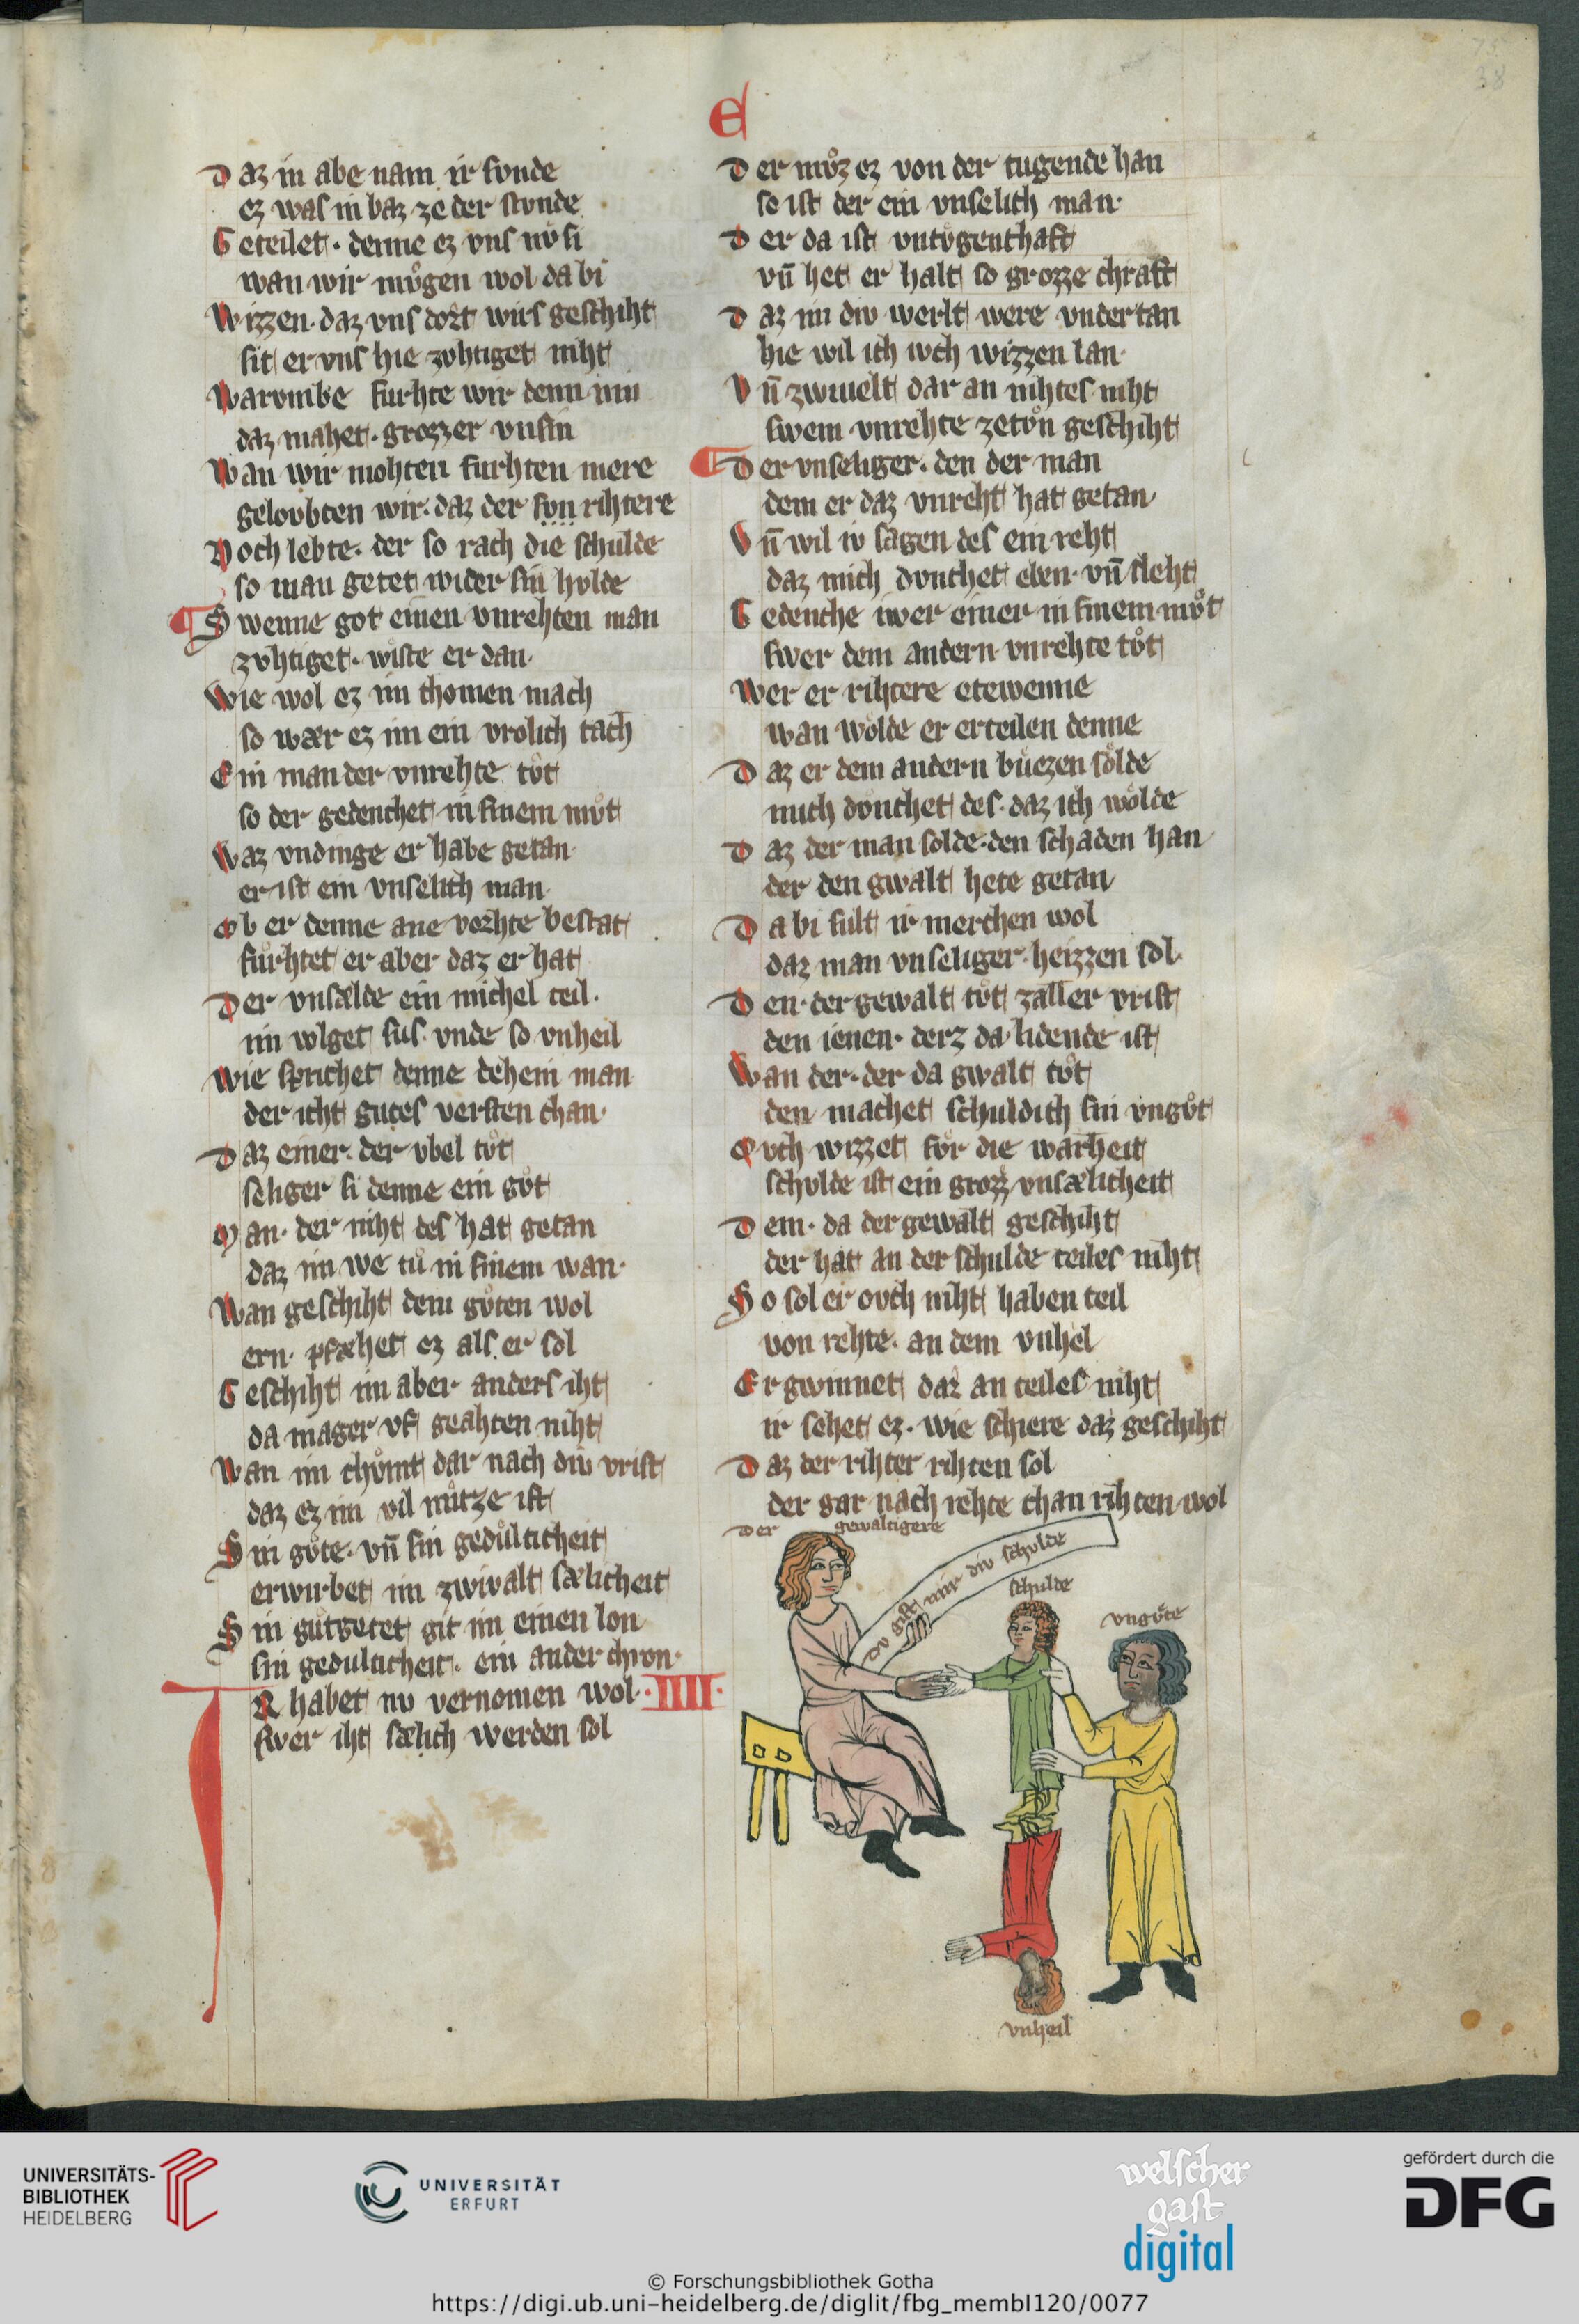 e
Daz in abe nam ir sunde
ez was in baz ze der stunde
Geteilet · denne ez vns nv si
wan wir mvͦgen wol da bi
Wizzen · daz vns dort wirs geschiht
sit er vns hie zvhtiget niht
Warvmbe furhte wir denn im
daz mahet · grozzer vnsin
Wan wir mohten furhten mere
geloubten wir · daz der svn rihtere
Noch lebte · der so rach die schulde
so man getet wider sin hvlde
Swenne got einen vnrehten man
zvhtiget · wiste er dan
Wie wol ez im chomen mach
so wær ez im ein vrolich tach
Ein man der vnrehte tvͦt
so der gedenchet in sinem mvͦt
Waz vndinge er habe getan
er ist ein vnselich man
Ob er denne ane vorhte bestat
furhtet er aber daz er hat
Der vnsælde ein michel teil ·
im volget sus · vnde so vnheil
Wie sprichet denne dehein man
der icht gutes versten chan ·
Daz einer · der vbel tvͦt
seliger si denne ein gvͦt
Man · der niht des hat getan
daz im we tuͦ in sinem wan ·
Wan geschiht dem gvͦten wol
ern · pfæhet ez als er sol
Geschiht im aber anders iht
da mager vf geahten niht
Wan im chvͦmt dar nach div vrist
daz ez im vil nutze ist
Sin gvͦte · vn̄ sin gedulticheit
erwirbet im zwivalt sælicheit
Sin guͦtgetet git im einen lon
sin gedulticheit · ein ander chron ·
IR habet nv vernomen wol · IIII ·
swer iht sælich werden sol
Der mvͦz ez von der tugende han
so ist der ein vnselich man ·
Der da ist vntvgenthaft
vn̄ het er halt so grozze chraft
Daz im div werlt were vndertan
hie wil ich ivch wizzen lan ·
Vn̄ zwiuelt dar an nihtes niht
swem vnrehte zetvͦn geschiht
Der vnseliger · den der man
dem er daz vnreht hat getan
Vn̄ wil iv sagen des ein reht
daz mich dvnchet eben · vn̄ sleht
Gedenche iwer einer in sinem mvͦt
swer dem andern vnrehte tvͦt
Wer er rihtere etewenne
wan wolde er erteilen denne
Daz er dem andern buͤzen solde
mich dvnchet des · daz ich wolde
Daz der man solde · den schaden han
der den gwalt hete getan
Da bi sult ir merchen wol
daz man vnseliger heizzen sol
Den · der gewalt tvͦt zaller vrist
den ienen · derz da lidende ist
Wan der · der da gwalt tvͦt
den machet schuldich sin vngvͦt
Ovch wizzet fvr die warheit
schulde ist ein grozz vnsælicheit
Dem · da der gewalt geschiht
der hat an der schulde teiles niht
So sol er ovch niht haben teil
von rehte · an dem vnhel
Er gwinnet dar an teiles niht
ir sehet ez · wie schiere daz geschiht
Daz der rihter rihten sol
der gar nach rehte chan rihten wol
der gewaltigere
dv gist mir div schulde
schulde
vngvͦte
vnheil
UNIVERSITÄTS-
BIBLIOTHEK
HEIDELBERG
UNIVERSITÄT
ERFURT
welscher
gast
digital
gefördert durch die
DFG
© Forschungsbibliothek Gotha
https://digi.ub.uni-heidelberg.de/diglit/fbg_membI120/0077